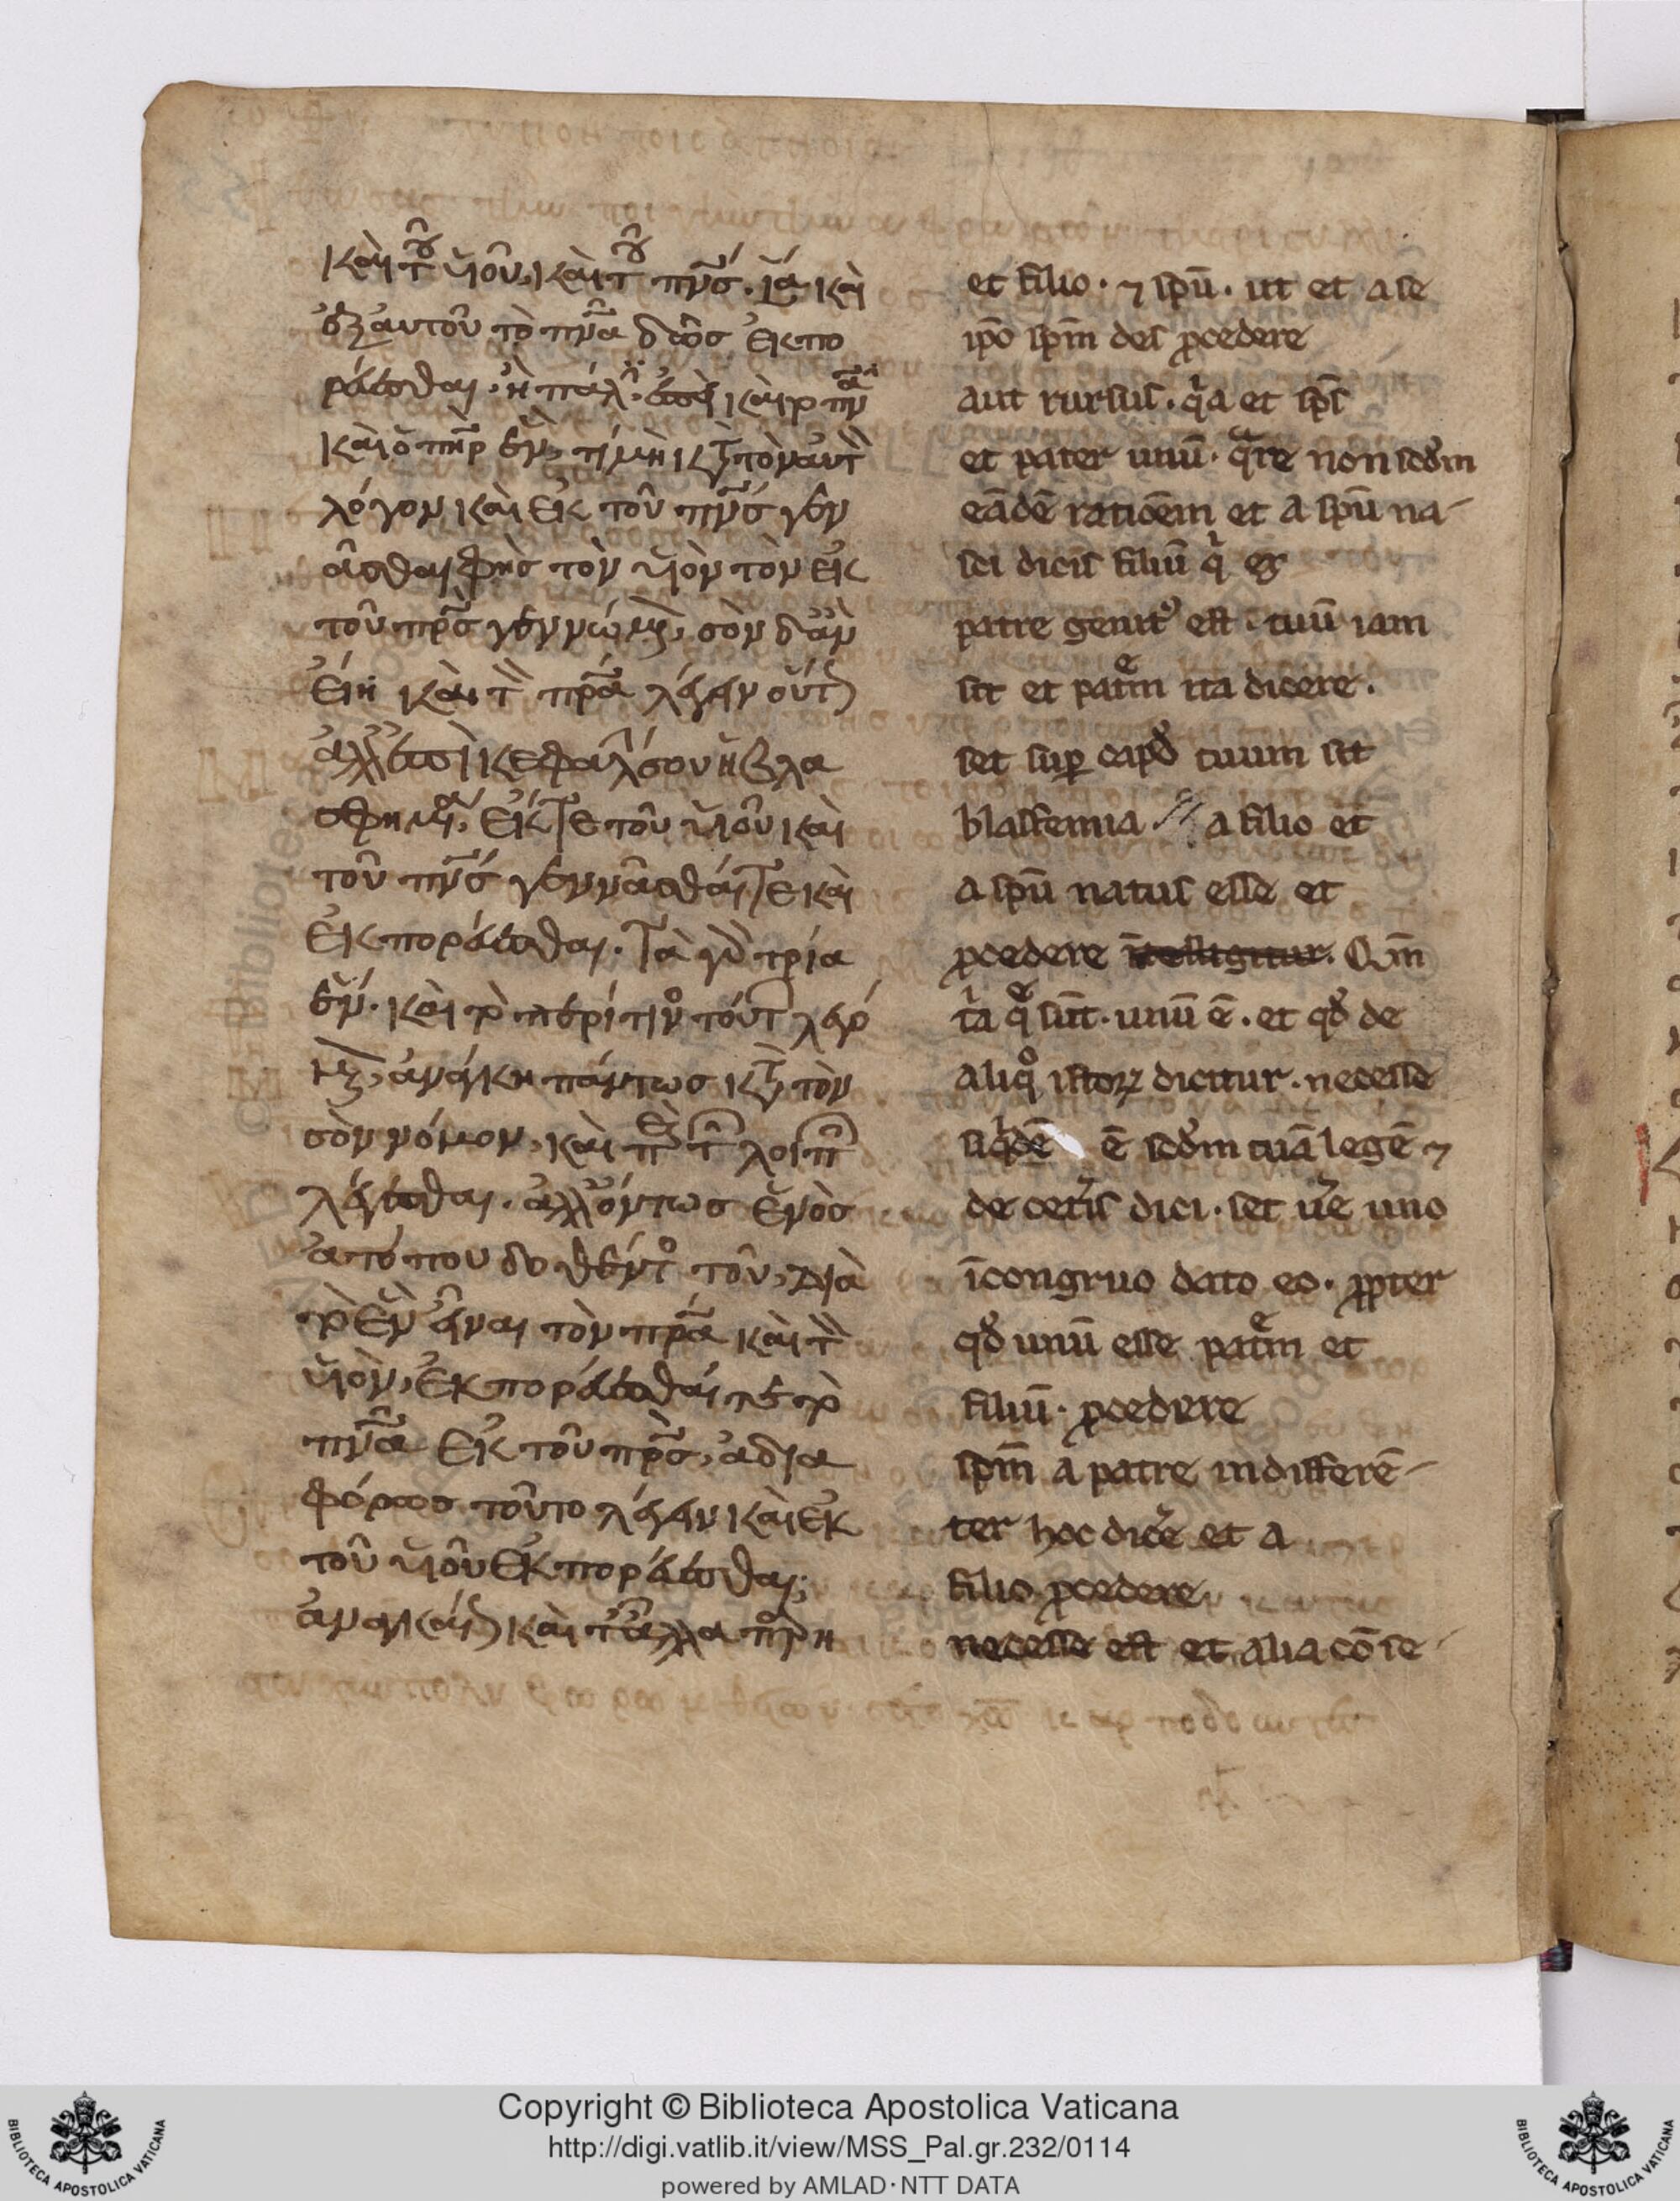 καὶ τοῦ υἱοῦ, καὶ τοῦ πνσ. ἵνα καὶ
ἐξ αυτοῦ τὸ πνα ἐκπο
ρεύεσθαι. ἢ πάλιν. ἐπεὶ καὶ τὸ πνα
καὶ ὁ πηρ ἕν, τί μὴ κτ τὸν αυτ
λόγον καὶ ἐκ τοῦ πνσ γεν
ᾶσθαι φὴς τὸν υἱὸν τὸν ἐκ
τοῦ πρσ γεννώμεν, σὸν δ ἂν
εἴη καὶ τ πρα λέγειν οὕτ
ἀλλ ἐπὶ κεφαλ σου ἡ βλα
σφημία, ἔκ τε τοῦ υἱοῦ καὶ
τοῦ πνσ γεννᾶσθαί τε καὶ
ἐκπορεύεσθαι. Τὰ γὰρ τρία
ἕν. καὶ τὸ περί τινο τούτ λεγό
μεν, ἀνάγκη πάντως κτ τὸν
σὸν νόμον, καὶ ἐπὶ τ λοιπ
λέγεσθαι. ἀλλ ὄντως ἑνὸς
ἀτόπου δοθέντο τοῦ, διὰ
τὸ ἓν εἶναι τὸν πρα καὶ τ
υἱὸν, ἐκπορεύεσθαί τε τὸ
πνα ἐκ τοῦ πρσ, ἀδια
φόρως τοῦτο λέγειν καὶ ἐκ
τοῦ υἱοῦ ἐκπορεύεσθαι;
ἀναγκαί καὶ τἆλλα
et filio. ⁊ spū. ut et a se
ipō spm̄ des ꝓcedere
aut rursus. qa et sps̄
et pater unū. qre non scd̄m
eādē ratiōem et a spū na-
sci dicis filiū q̇ ex
patre genit᾽ est. tuū iam
sit et patm̄ ita dicere.
set suꝑ capd tuum sit
blasfemia // a filio et
a spū natus esse et
ꝓcedere Qm̄
ta q sūt. unū ē. et qd̄ de
aliqͦ istoꝝ dicitur. necesse
siqdē ē scd̄m tuā legē ⁊
de cetis dici. set ue uno
īcongruo dato eo. ꝓpter
qd̄ unū esse patm̄ et
filiū. ꝓcedere
spm̄ a patre indifferē-
ter hoc dice et a
filio ꝓcedere
necesse est et alia cōse-
Copyright © Biblioteca Apostolica Vaticana
http://digi.vatlib.it/view/MSS_Pal.gr.232/0114
powered by AMLAD·NTT DATA
BIBLIOTECA APOSTOLICA VATICANA
BIBLIOTECA APOSTOLICA VATICANA